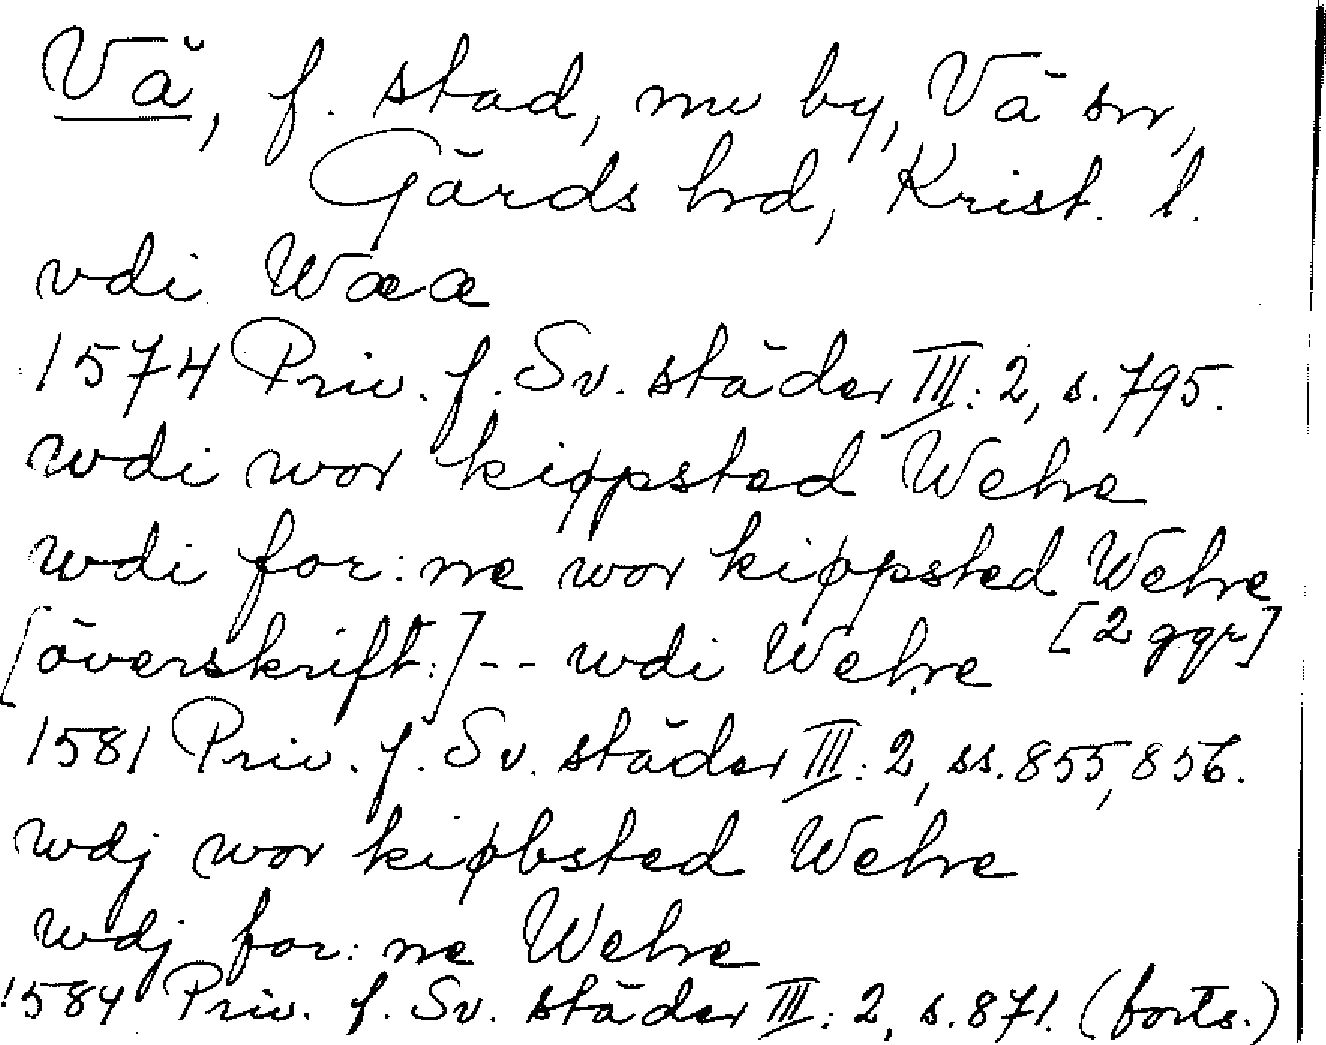 Vä, f. stad, nu by, Vä sn,
Gärds hd, Krist. l.
vdi Waæ
1574 Priv. f. Sv. städer III: 2, s. 795.
wdi wor kiøpsted Wehe
wdi for:ne wor kiøppsted Wehe
[2 ggr]
[överskrift:] -- wdi Wehe
1581 Priv. f. Sv. städer III: 2, ss. 855, 856.
wdj wor kiøbsted Wehe
wdj for:ne Wehe
1584 Priv. f. Sv. städer III: 2, s. 871. (forts.)